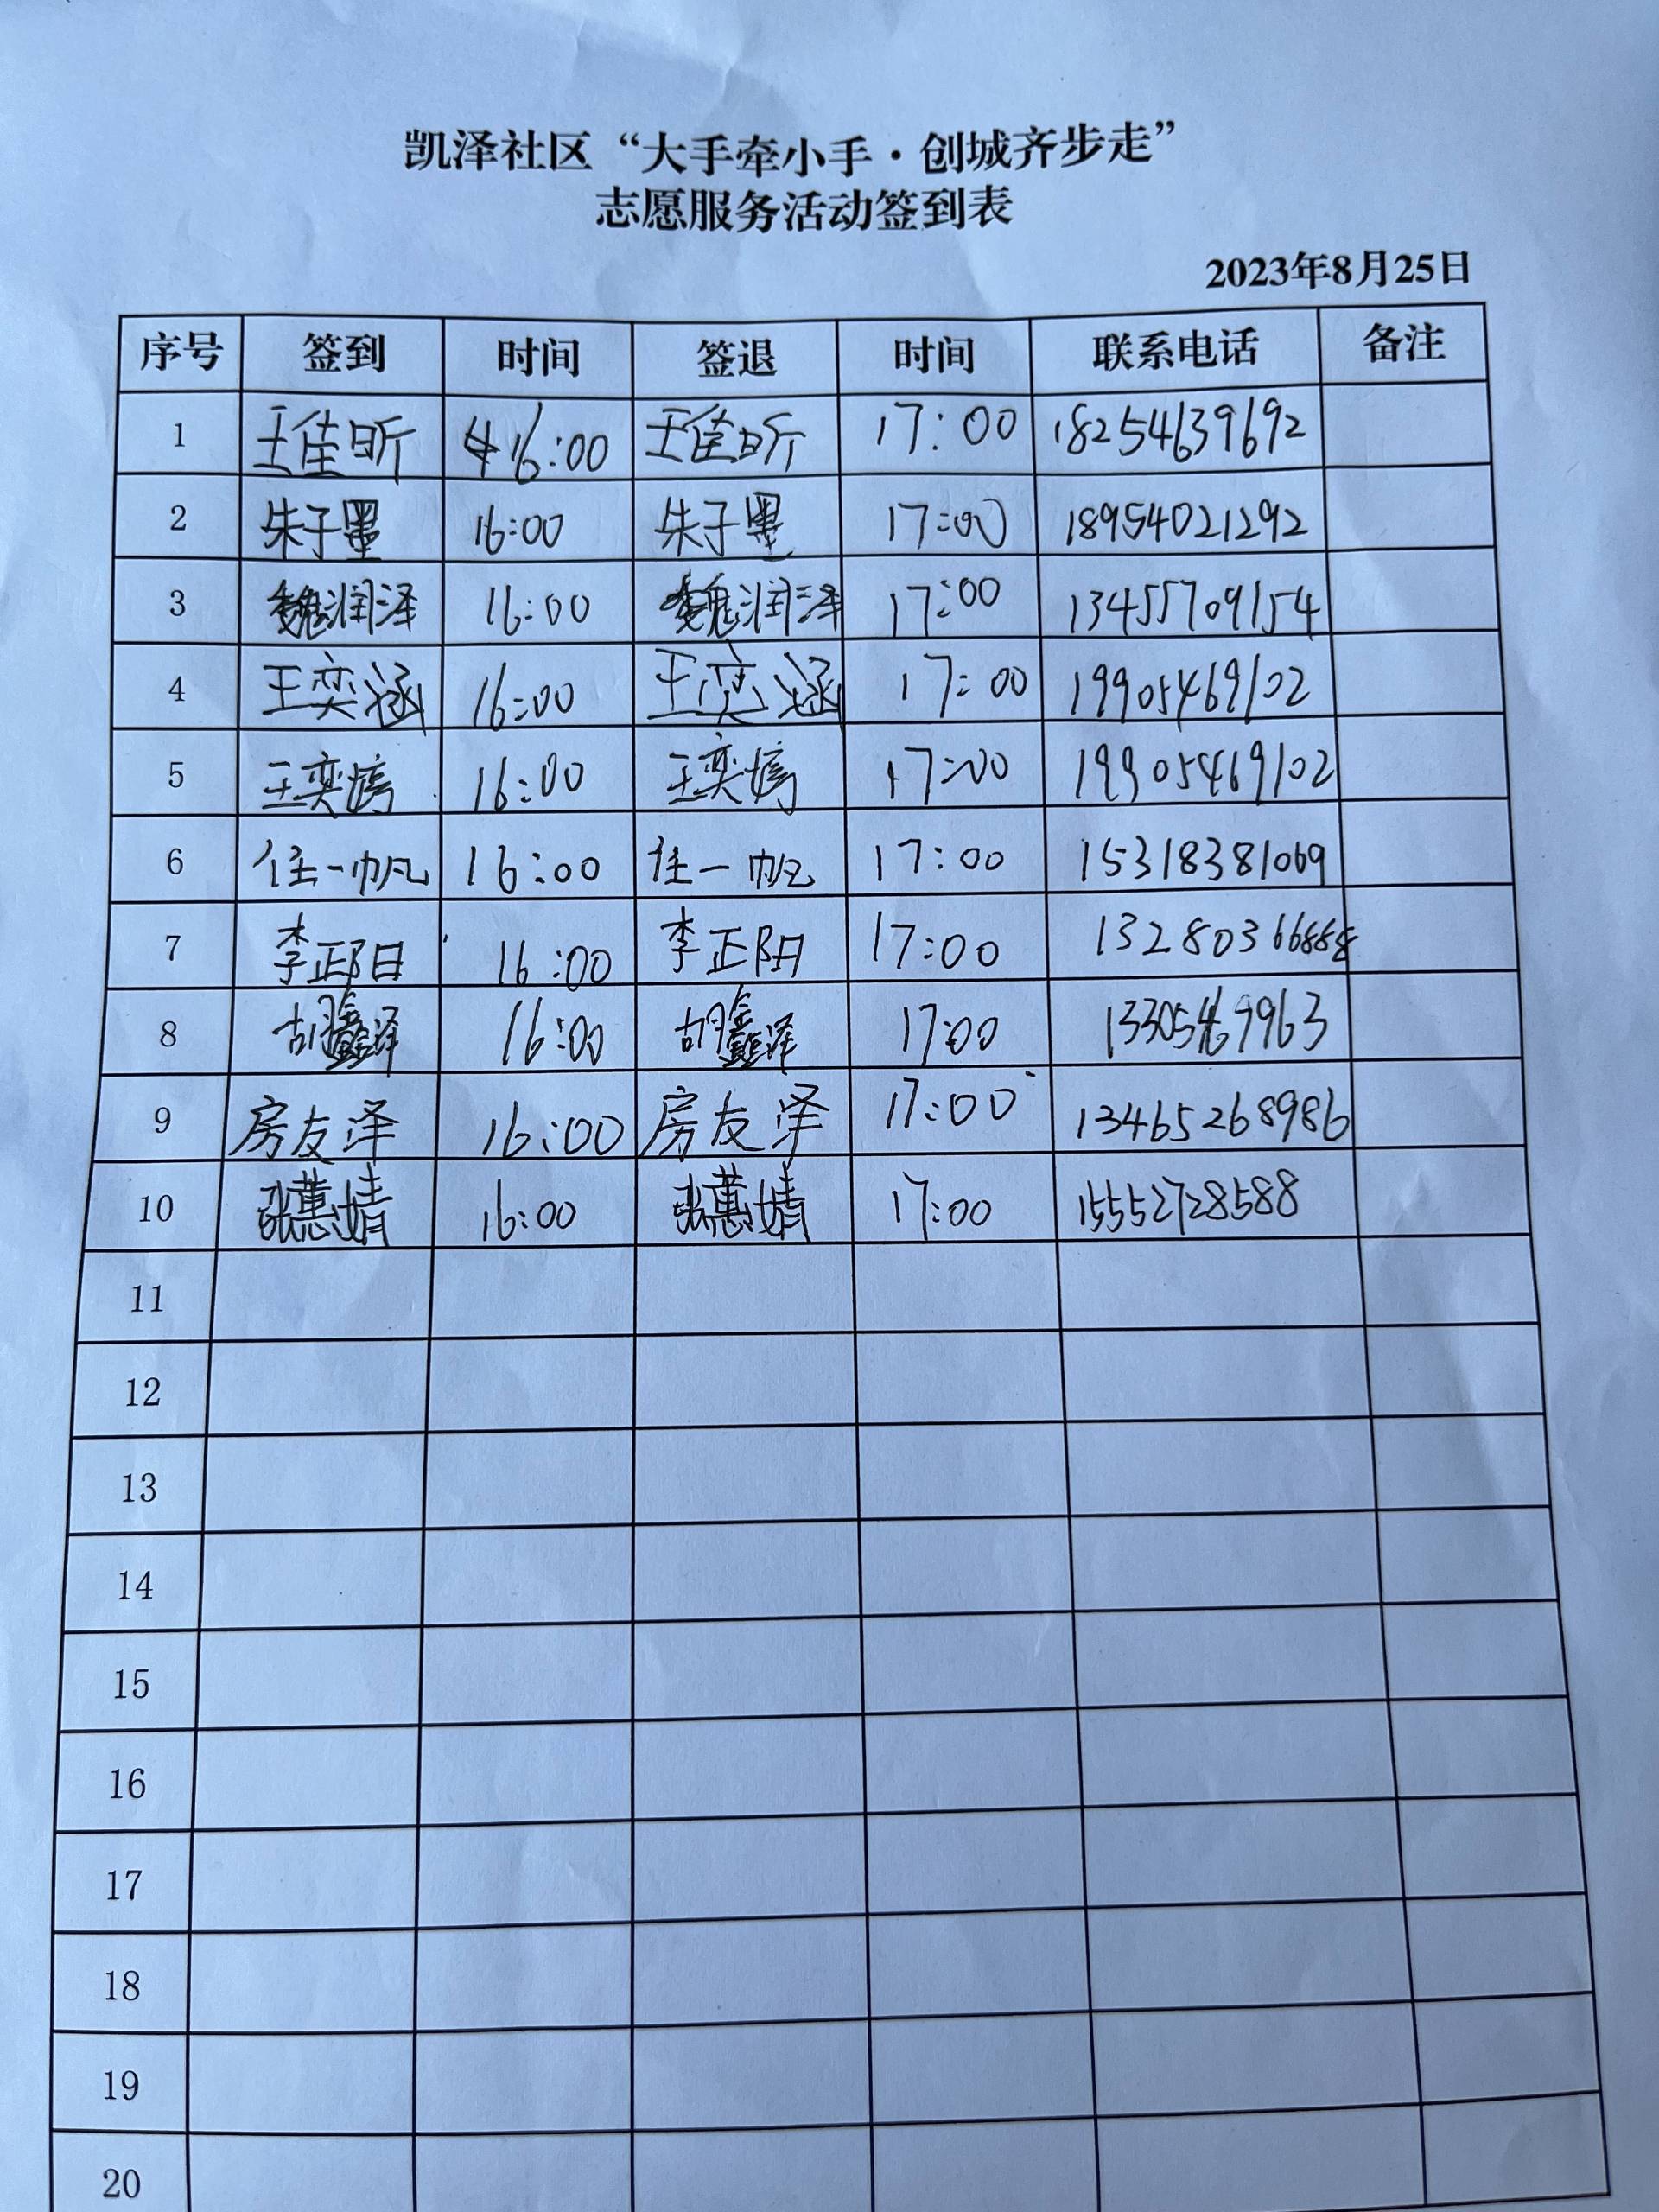 凯泽社区“大手牵小手·创城齐步走”
志愿服务活动签到表
2023年8月25日
序号 签到 时间 签退 时间 联系电话 备注
1 王佳昕 16:00 王佳昕 17:00 18254639692
2 朱子墨 16:00 朱子墨 17:00 18954021292
3 魏润泽 16:00 魏润泽 17:00 13455709154
4 王奕涵 16:00 王奕涵 17:00 19905469102
5 王奕婷 16:00 王奕婷 17:00 19905469102
6 任一帆 16:00 任一帆 17:00 15318381069
7 李正阳 16:00 李正阳 17:00 13280366888
8 胡鑫泽 16:00 胡鑫泽 17:00 13305469963
9 房友泽 16:00 房友泽 17:00 13465268986
10 张蕙婧 16:00 张蕙婧 17:00 15552728588
11
12
13
14
15
16
17
18
19
20